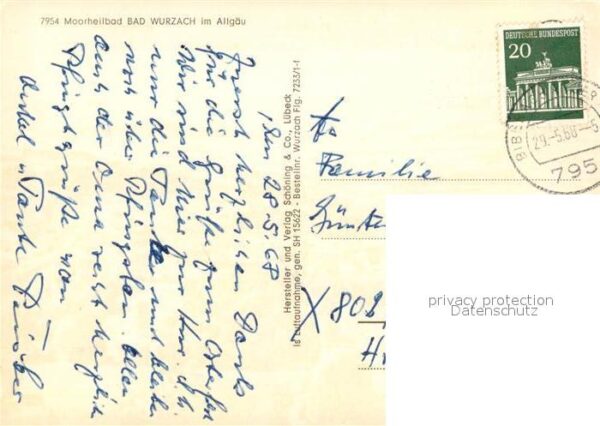 7954 Moorheilbad BAD WURZACH im Allgäu
, den 28.5.68
Zuerst herzlichen Dank
für die Grüße zum Osterfest
Wir sind hier zur Kur. d.h.
nur die Tante und bleiben
noch über Pfingsten. Allen
auch der Oma recht herzliche
Pfingstgrüße von
Onkel u Tante
Hersteller und Verlag Schöning & Co., Lübeck
Luftaufnahme, gen. SH 15622 - Bestellnr. Wurzach Flg. 7233/1-1
DEUTSCHE BUNDESPOST
20
29.-5.68
795
An
Familie
Günter
X 808
privacy protection
Datenschutz